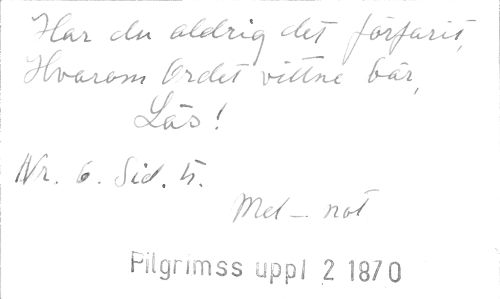 Har du aldrig det förfarit,
Hvarom Ordet vittne bär,
Läs!
Nr. 6. Sid. 5.
Mel — not
Pilgrimss uppl 2 1870